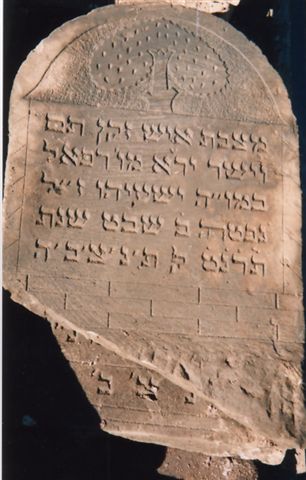 מצבת איש זקן תם
וישר ירא מו' רפאל
במו"ה ישעיהו ז"ל
נפטר כ שבט שנת
תרנט ל ת'נ'צ'ב'ה